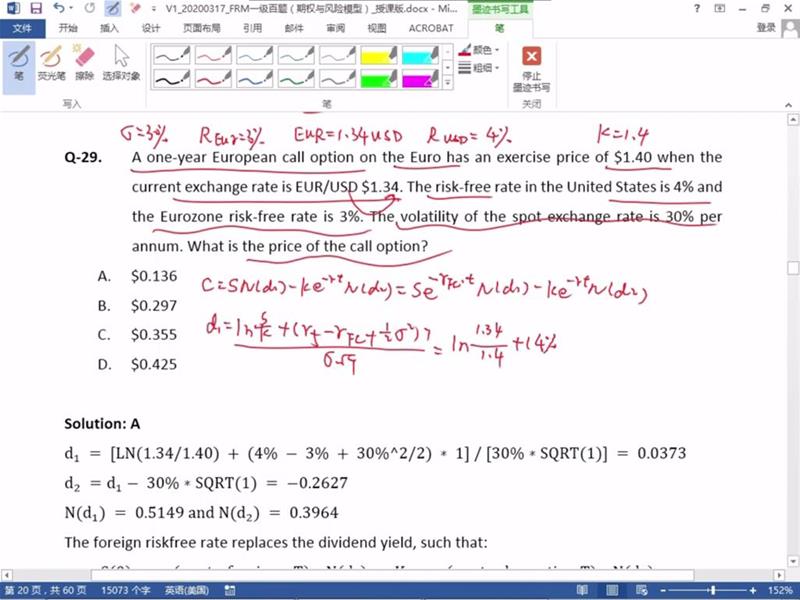 V1_20200317_FRM一级百题（期权与风险模型）_授课版.docx - Mi...
墨迹书写工具
文件 开始 插入 设计 页面布局 引用 邮件 审阅 视图 ACROBAT 笔 登录
笔 荧光笔 擦除 选择对象
颜色
粗细
停止
墨迹书写
写入 笔 关闭
σ=30% R EUR=3% EUR=1.34USD R USD=4% K=1.4
Q-29. A one-year European call option on the Euro has an exercise price of $1.40 when the
current exchange rate is EUR/USD $1.34. The risk-free rate in the United States is 4% and
the Eurozone risk-free rate is 3%. The volatility of the spot exchange rate is 30% per
annum. What is the price of the call option?
A. $0.136
B. $0.297
C. $0.355
D. $0.425
Solution: A
d₁ = [LN(1.34/1.40) + (4% − 3% + 30%^2/2) * 1] / [30% * SQRT(1)] = 0.0373
d₂ = d₁ − 30% * SQRT(1) = −0.2627
N(d₁) = 0.5149 and N(d₂) = 0.3964
The foreign riskfree rate replaces the dividend yield, such that:
第 20 页，共 60 页 15073 个字 英语(美国) 152%